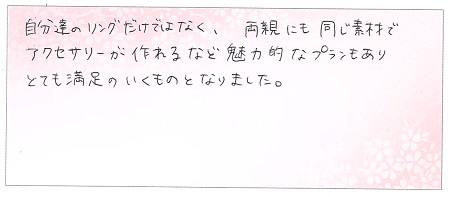 自分達のリングだけではなく、両親にも同じ素材で
アクセサリーが作れるなど魅力的なプランもあり
とても満足のいくものとなりました。